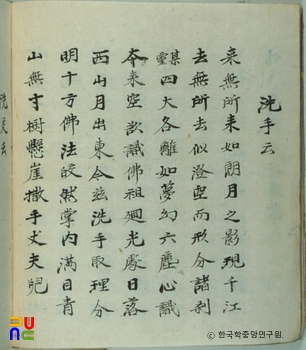 洗手云
來無所來如朗月之影現千江
去無所去似澄空而形分諸刹
某靈四大各離如夢幻六塵心識
本來空欲識佛祖廻光處日落
西山月出東今玆洗手取理分
明十方佛法皎然掌內滿目青
山無寸樹懸崖撒手丈夫
洗足云
ⓒ 한국학중앙연구원